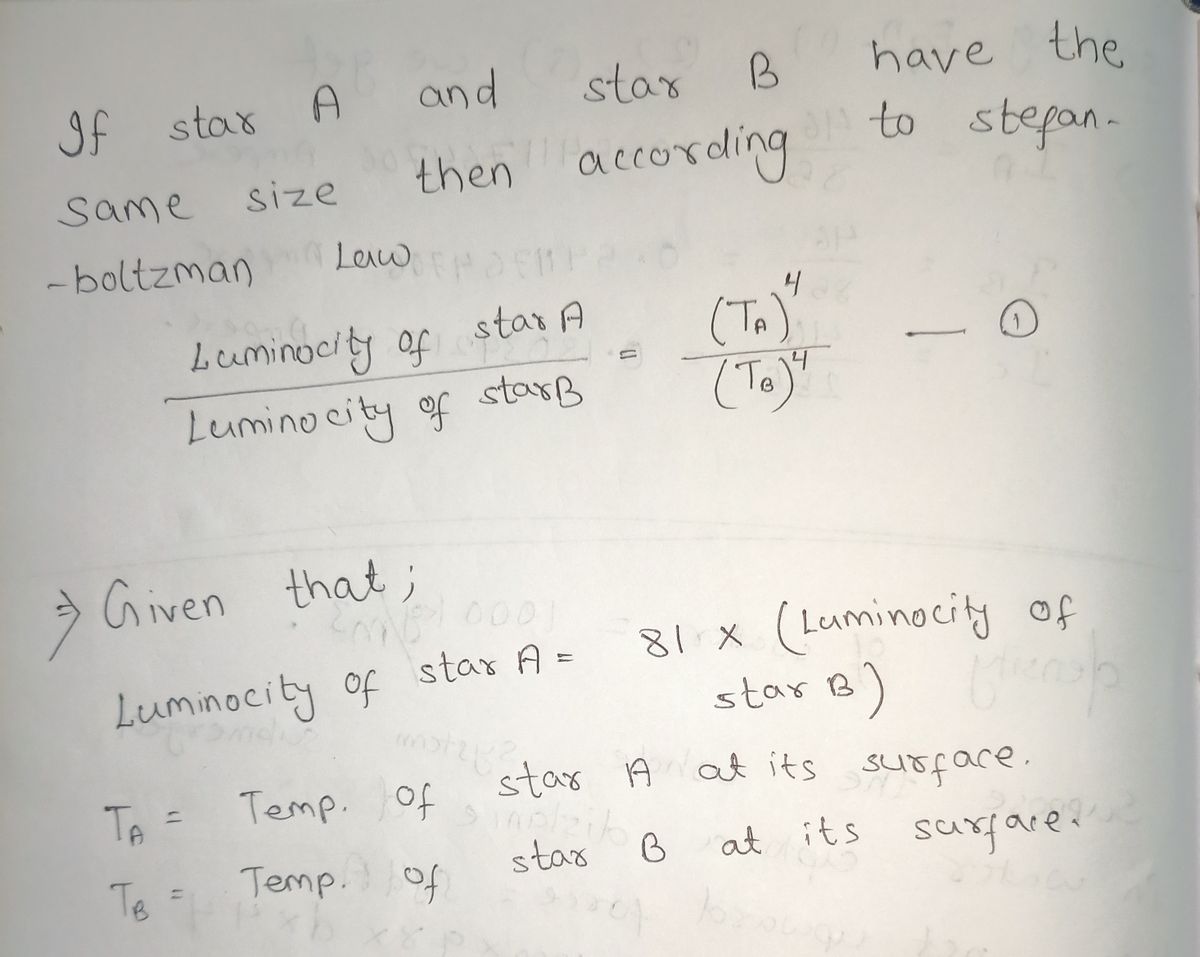 If star A and star B have the
same size then according to stefan-
-boltzman Law
Luminocity of star A / Luminocity of star B = (TA)⁴ / (TB)⁴ — ①
⇒ Given that ;
Luminocity of star A = 81 x (Luminocity of
star B)
TA = Temp. of star A at its surface.
TB = Temp. of star B at its surface.